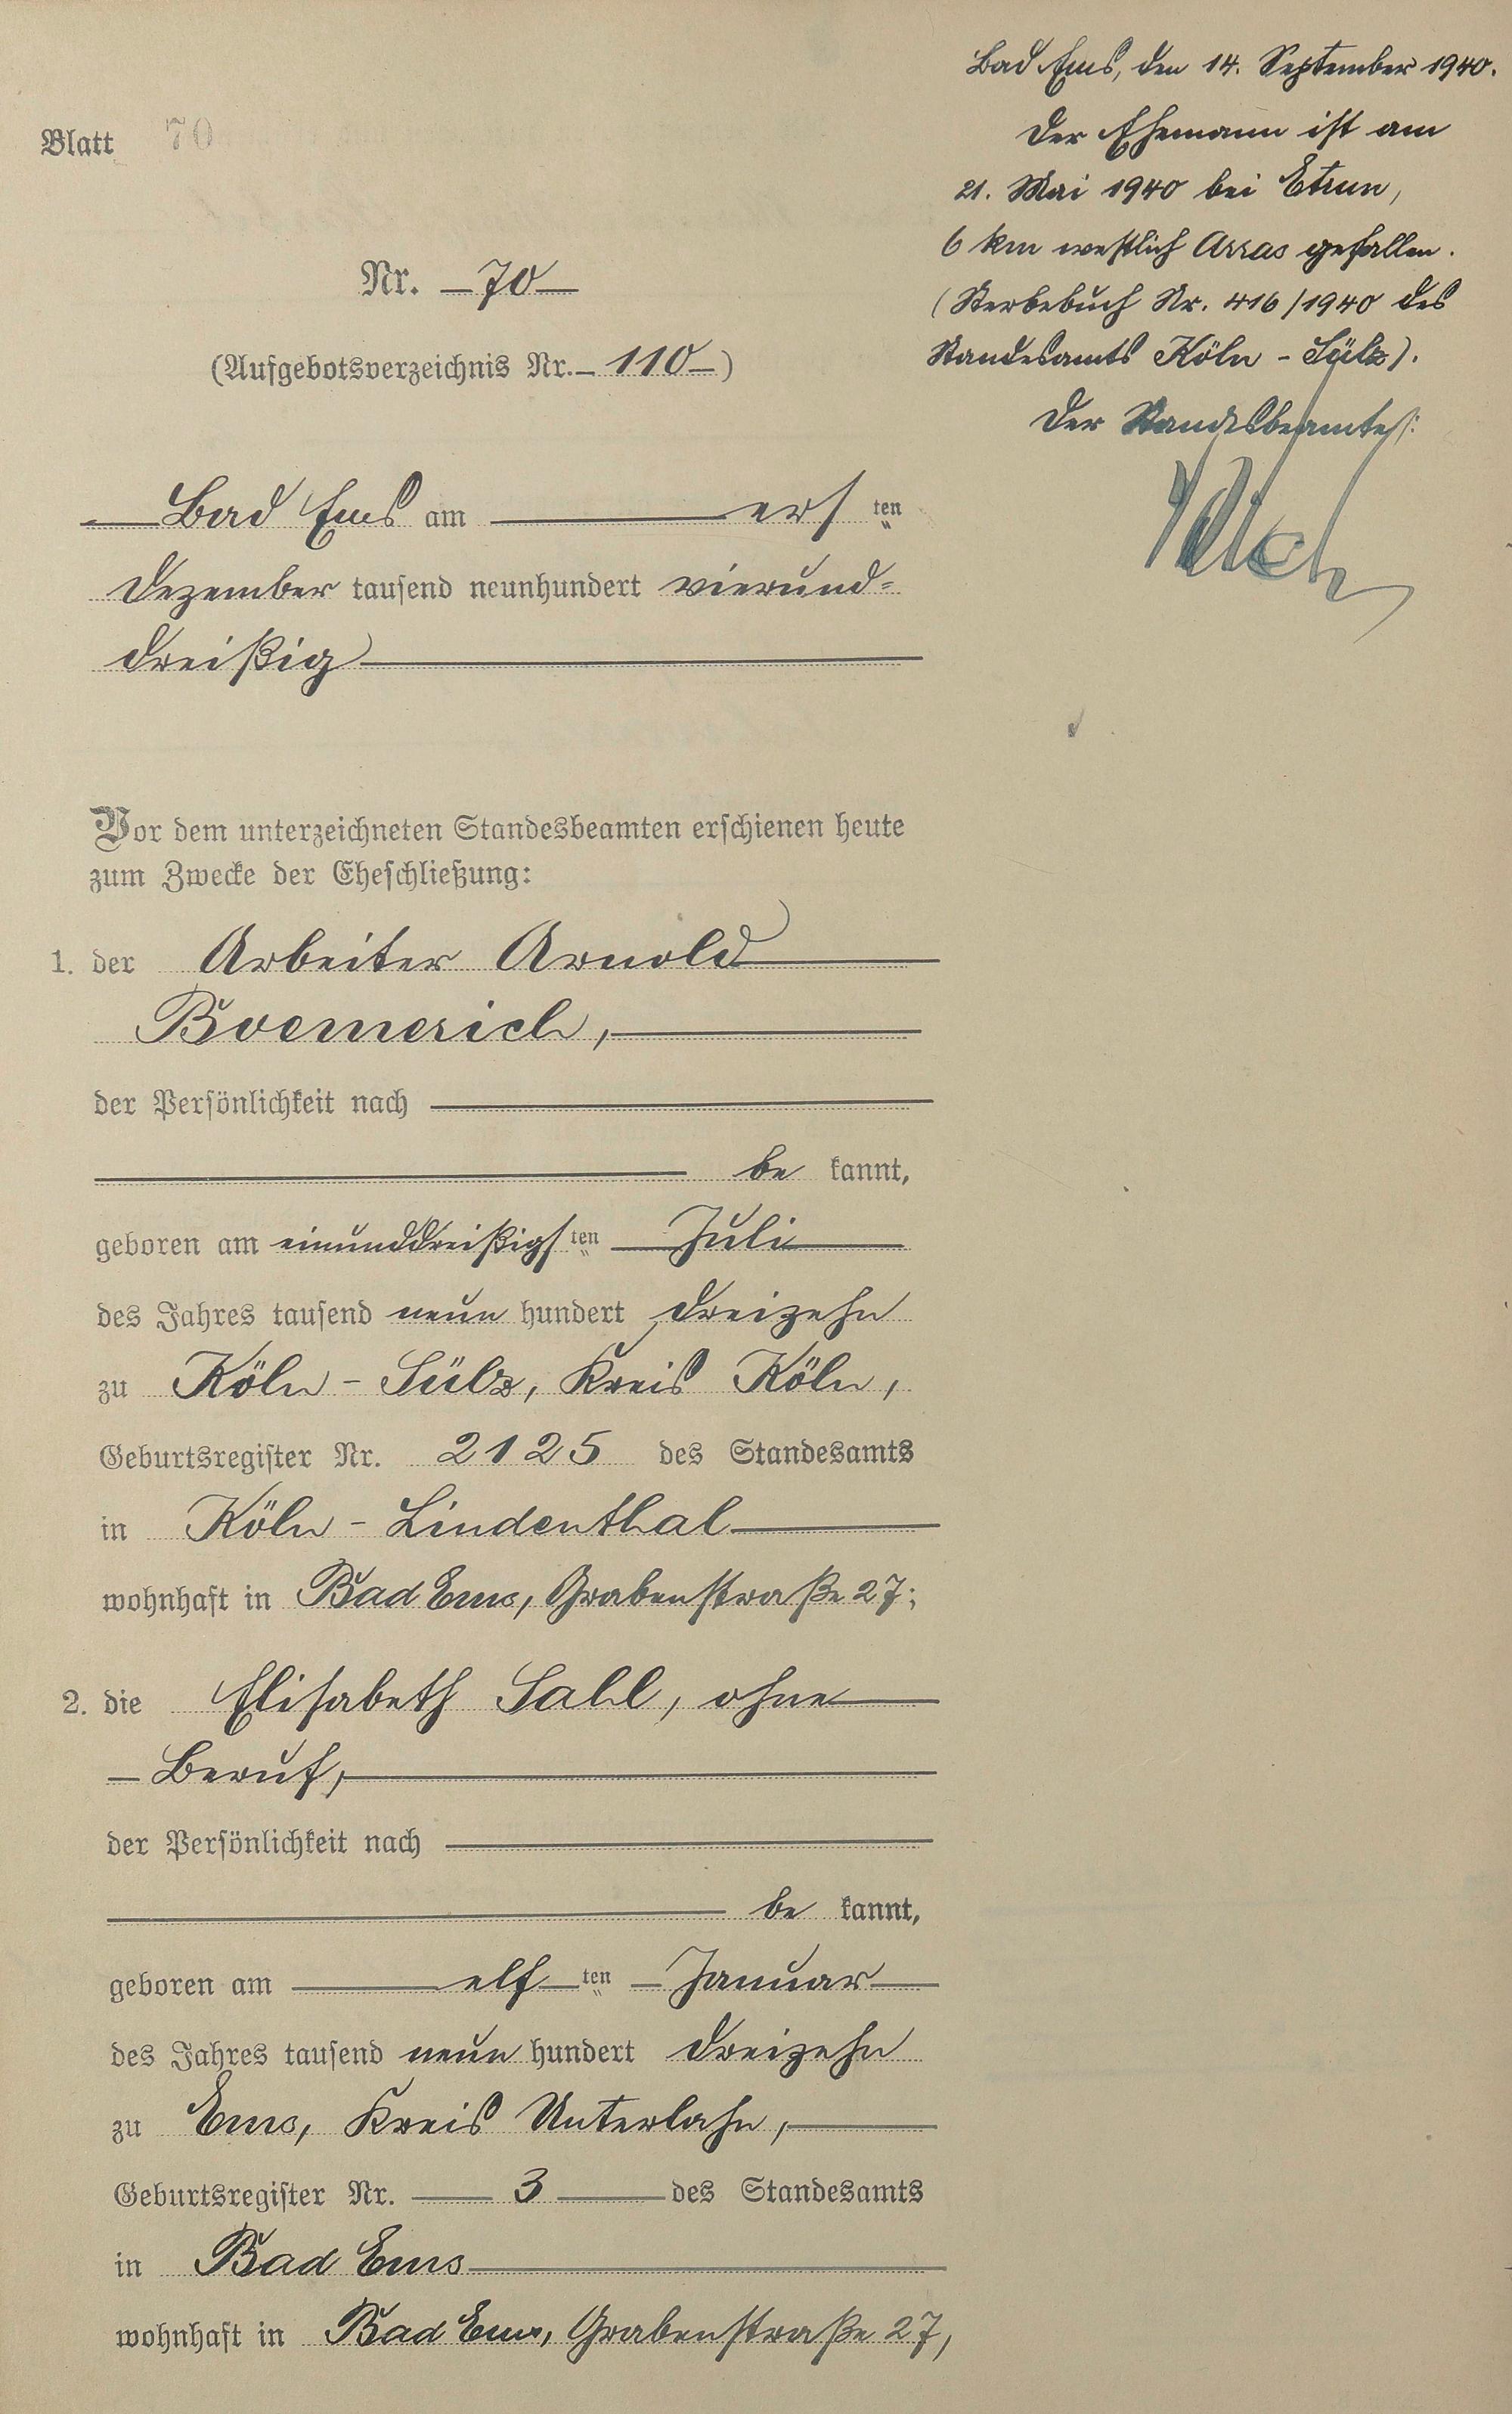 Blatt 70
Nr. 70
(Aufgebotsverzeichnis Nr. 110)
Bad Ems am ersten
Dezember tausend neunhundert vierund-
dreißig
Vor dem unterzeichneten Standesbeamten erschienen heute
zum Zwecke der Eheschließung:
1. der Arbeiter Arnold
Boemerich,
der Persönlichkeit nach
be kannt,
geboren am einunddreißigsten Juli
des Jahres tausend neun hundert dreizehn
zu Köln - Sülz, Kreis Köln,
Geburtsregister Nr. 2125 des Standesamts
in Köln - Lindenthal
wohnhaft in Bad Ems, Grabenstraße 27;
2. die Elisabeth Sall, ohne
Beruf,
der Persönlichkeit nach
be kannt,
geboren am elften Januar
des Jahres tausend neun hundert dreizehn
zu Ems, Kreis Unterlahn,
Geburtsregister Nr. 3 des Standesamts
in Bad Ems
wohnhaft in Bad Ems, Grabenstraße 27,
Bad Ems, den 14. September 1940.
Der Ehemann ist am
21. Mai 1940 bei Etrun,
6 km westlich Arras gefallen.
(Sterbebuch Nr. 416/1940 des
Standesamts Köln - Sülz).
Der Standesbeamte: